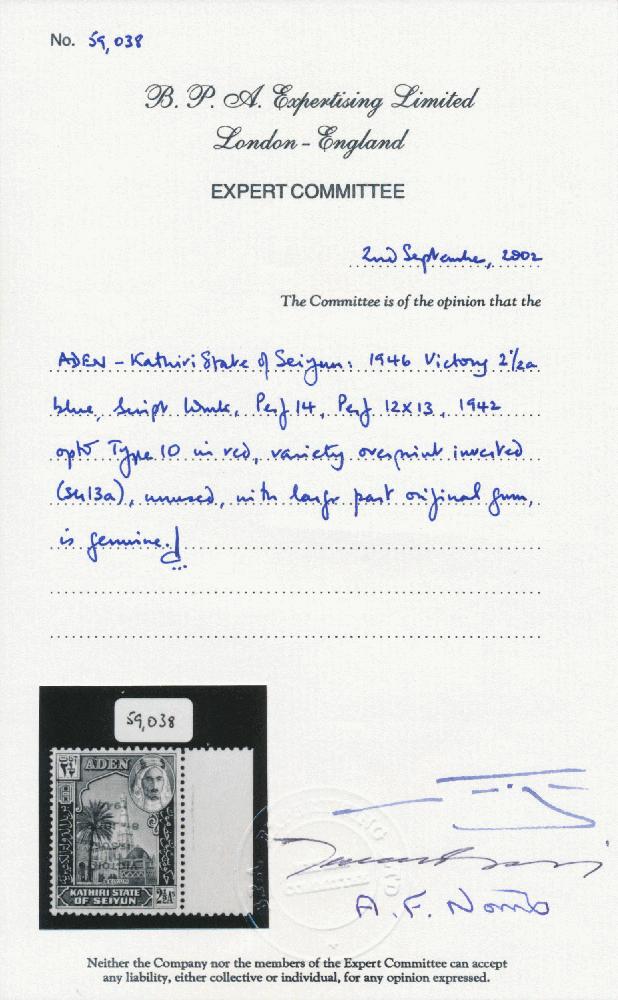 No. 59,038
B. P. A. Expertising Limited
London - England
EXPERT COMMITTEE
2nd September, 2002
The Committee is of the opinion that the
ADEN - Kathiri State of Seiyun: 1946 Victory 2½a
blue, Script Wmk, Perf 14, Perf 12x13, 1942
optd Type 10 in red, variety overprint inverted
(SG13a), unused, with large part original gum,
is genuine.
59,038
ADEN
KATHIRI STATE
OF SEIYUN
2½As
A. F. Norris
Neither the Company nor the members of the Expert Committee can accept
any liability, either collective or individual, for any opinion expressed.